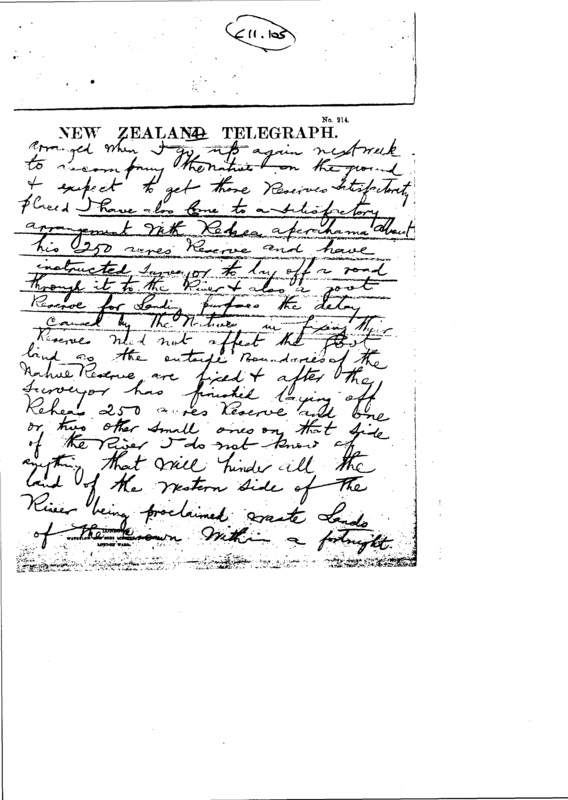 E11.105
No. 214.
NEW ZEALAND TELEGRAPH.
arranged when I go up again next week
to accompany the natives on the ground
& expect to get those Reserves satisfactorily
placed I have also come to a satisfactory
arrangement with Rehea about
his 250 acres Reserve and have
instructed surveyor to lay off a road
through it to the River & also a
Reserve for Landing purposes the delay
caused by the Natives in fixing their
Reserves need not affect the
land as the outside boundaries of the
Native Reserve are fixed & after the
surveyor has finished laying off
Reheas 250 acres Reserve and one
or two other small ones on that side
of the River I do not know of
anything that will hinder all the
land of the western side of the
River being proclaimed waste Lands
of the Crown within a fortnight.
LONDON WALL.